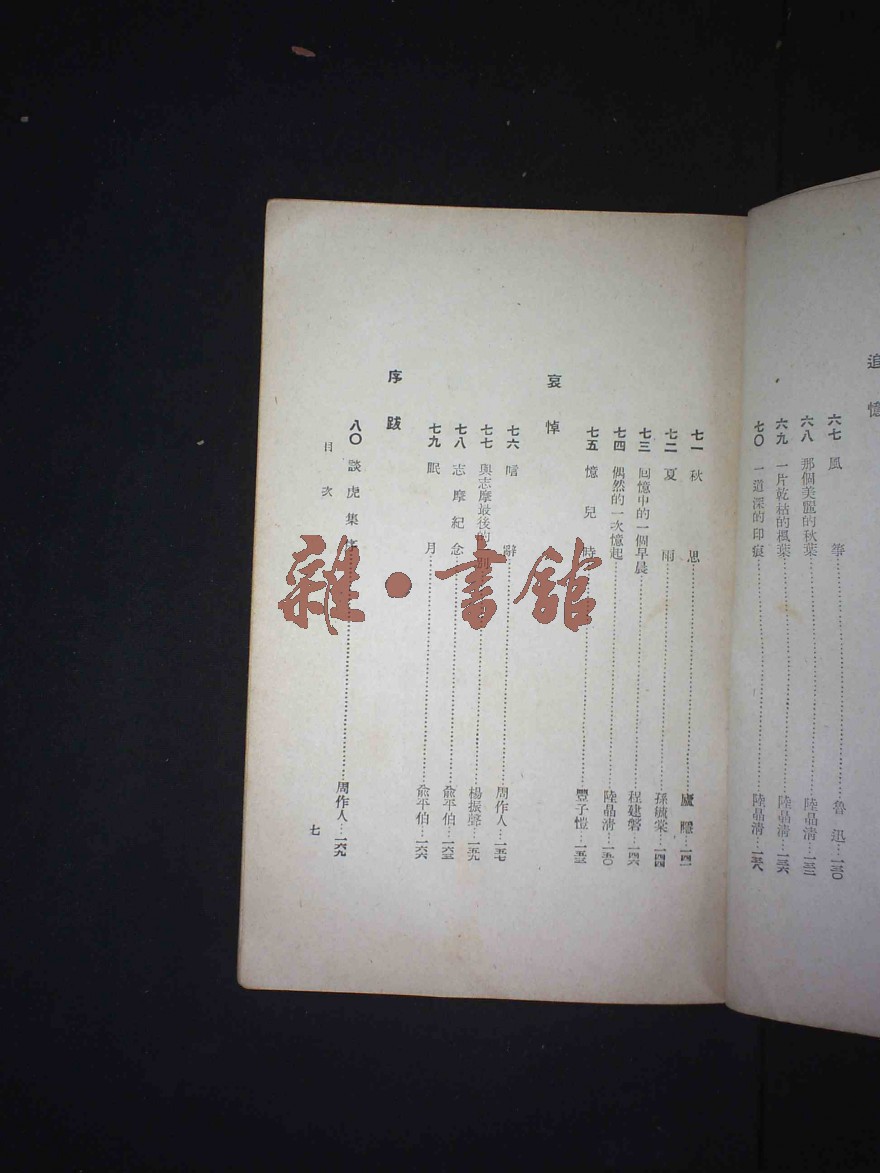 追憶
六七 風箏……魯迅…一三〇
六八 那個美麗的秋葉……陸晶清…一三二
六九 一片乾枯的楓葉……陸晶清…一三六
七〇 一道深的印痕……陸晶清…一三八
七一 秋思……廬隱…一四一
七二 夏雨……孫毓棠…一四四
七三 回憶中的一個早晨……程建磐…一四六
七四 偶然的一次憶起……陸晶清…一五〇
七五 憶兒時……豐子愷…一五三
哀悼
七六 唁辭……周作人…一五七
七七 與志摩最後的一別……楊振聲…一五九
七八 志摩紀念……俞平伯…一六三
七九 眠月……俞平伯…一六六
序跋
八〇 談虎集序……周作人…一六九
目次
七
雜·書館